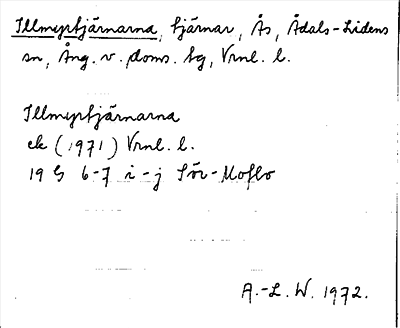 Illmyrtjärnarna, tjärnar, Ås, Ådals-Lidens
sn, Ång. v. doms. tg, Vrnl. l.
Illmyrtjärnarna
ek (1971) Vrnl. l.
19 G 6-7 i-j Sör-Moflo
A.-L. W. 1972.